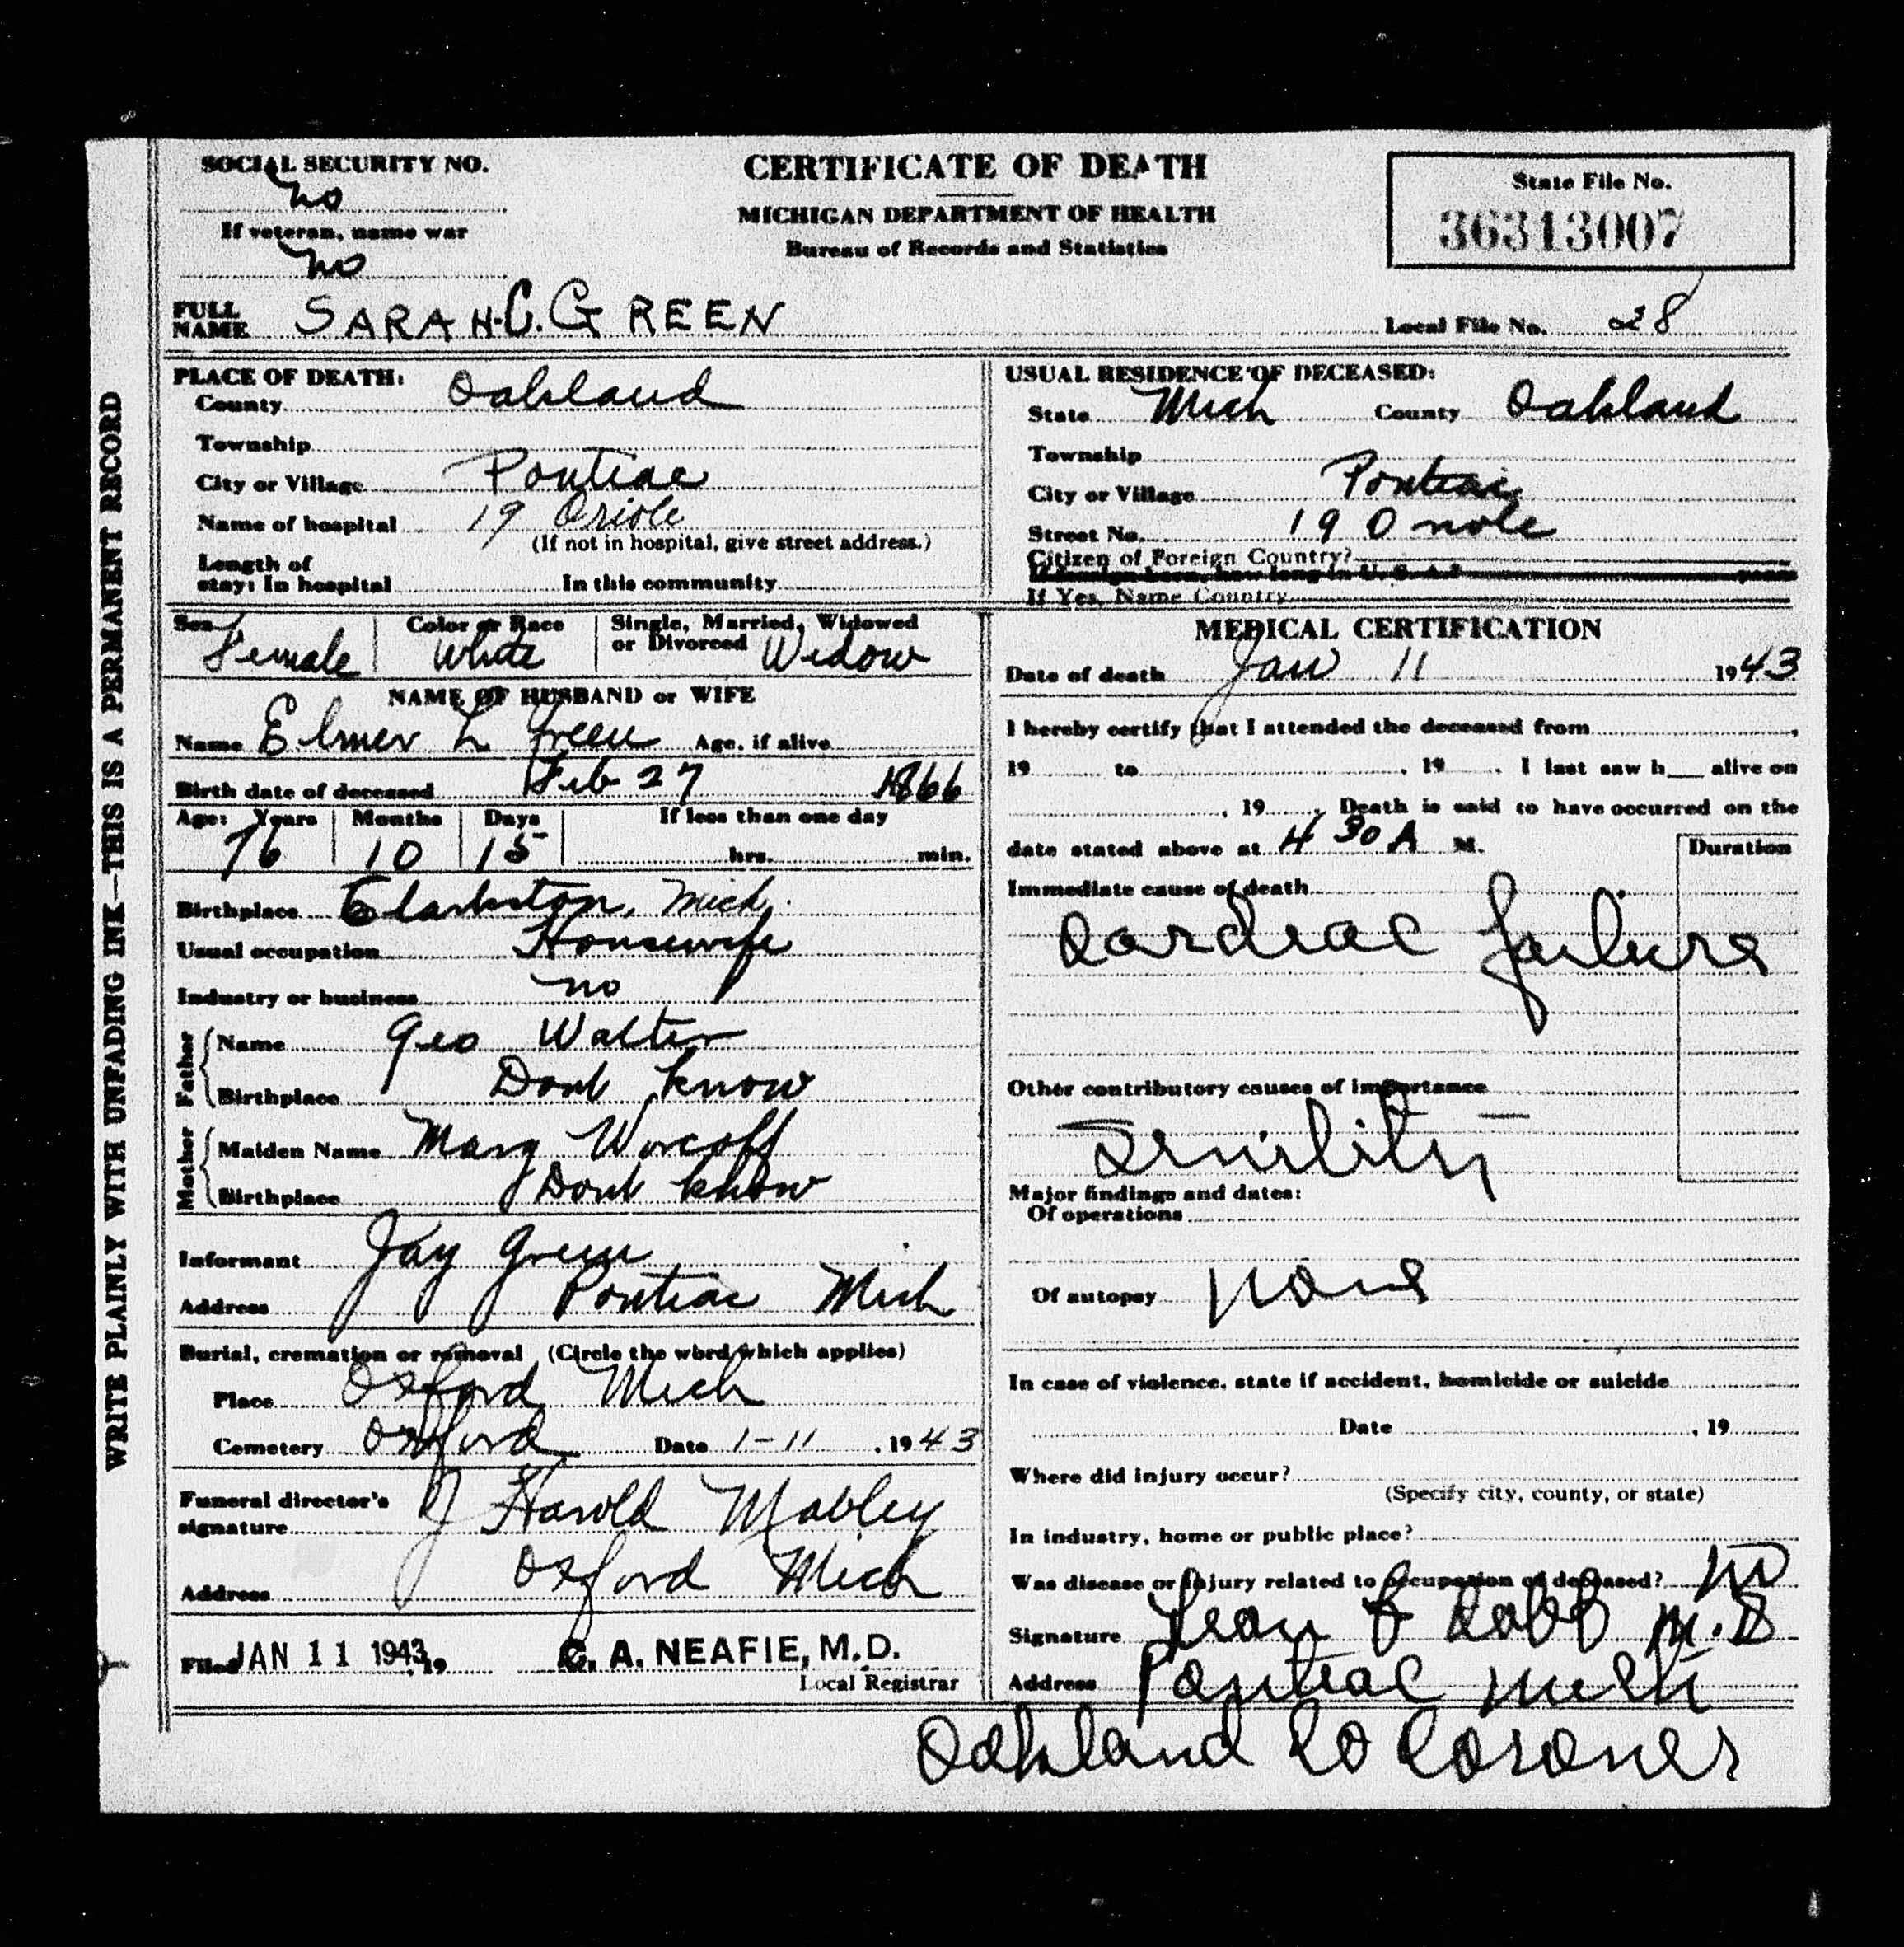 WRITE PLAINLY WITH UNFADING INK—THIS IS A PERMANENT RECORD
SOCIAL SECURITY NO.
no
If veteran, name war
no
CERTIFICATE OF DEATH
MICHIGAN DEPARTMENT OF HEALTH
Bureau of Records and Statistics
State File No.
36313007
FULL NAME SARAH C. GREEN
Local File No. 28
PLACE OF DEATH:
County Oakland
Township
City or Village Pontiac
Name of hospital 19 Oriole
(If not in hospital, give street address.)
Length of
stay: In hospital In this community
USUAL RESIDENCE OF DECEASED:
State Mich County Oakland
Township
City or Village Pontiac
Street No. 19 Oriole
Citizen of Foreign Country?
If foreign born, how long in U. S. A.? years
If Yes, Name Country
Sex Female Color or Race White Single, Married, Widowed or Divorced Widow
NAME OF HUSBAND or WIFE
Name Elmer L Green Age, if alive
Birth date of deceased Feb 27 1866
Age: Years Months Days If less than one day
76 10 15 hrs. min.
Birthplace Clarkston, Mich.
Usual occupation Housewife
Industry or business no
Father
Name Geo Walter
Birthplace Dont know
Mother
Maiden Name Mary
Birthplace Dont know
Informant Jay Green
Address Pontiac Mich
Burial, cremation or removal (Circle the word which applies)
Place Oxford Mich
Cemetery Oxford Date 1-11, 1943
Funeral director's
signature J Harold Mabley
Address Oxford Mich
Filed JAN 11 1943, 19 C. A. NEAFIE, M.D.
Local Registrar
MEDICAL CERTIFICATION
Date of death Jan 11 1943
I hereby certify that I attended the deceased from ,
19 to , 19 . I last saw h alive on
, 19 . Death is said to have occurred on the
date stated above at 4 30 A M.
Duration
Immediate cause of death
Cardiac failure
Other contributory causes of importance
Senility
Major findings and dates:
Of operations
Of autopsy none
In case of violence, state if accident, homicide or suicide
Date , 19
Where did injury occur?
(Specify city, county, or state)
In industry, home or public place?
Was disease or injury related to occupation of deceased? no
Signature Leon F Cobb M.D
Address Pontiac Mich
Oakland Co Coroner